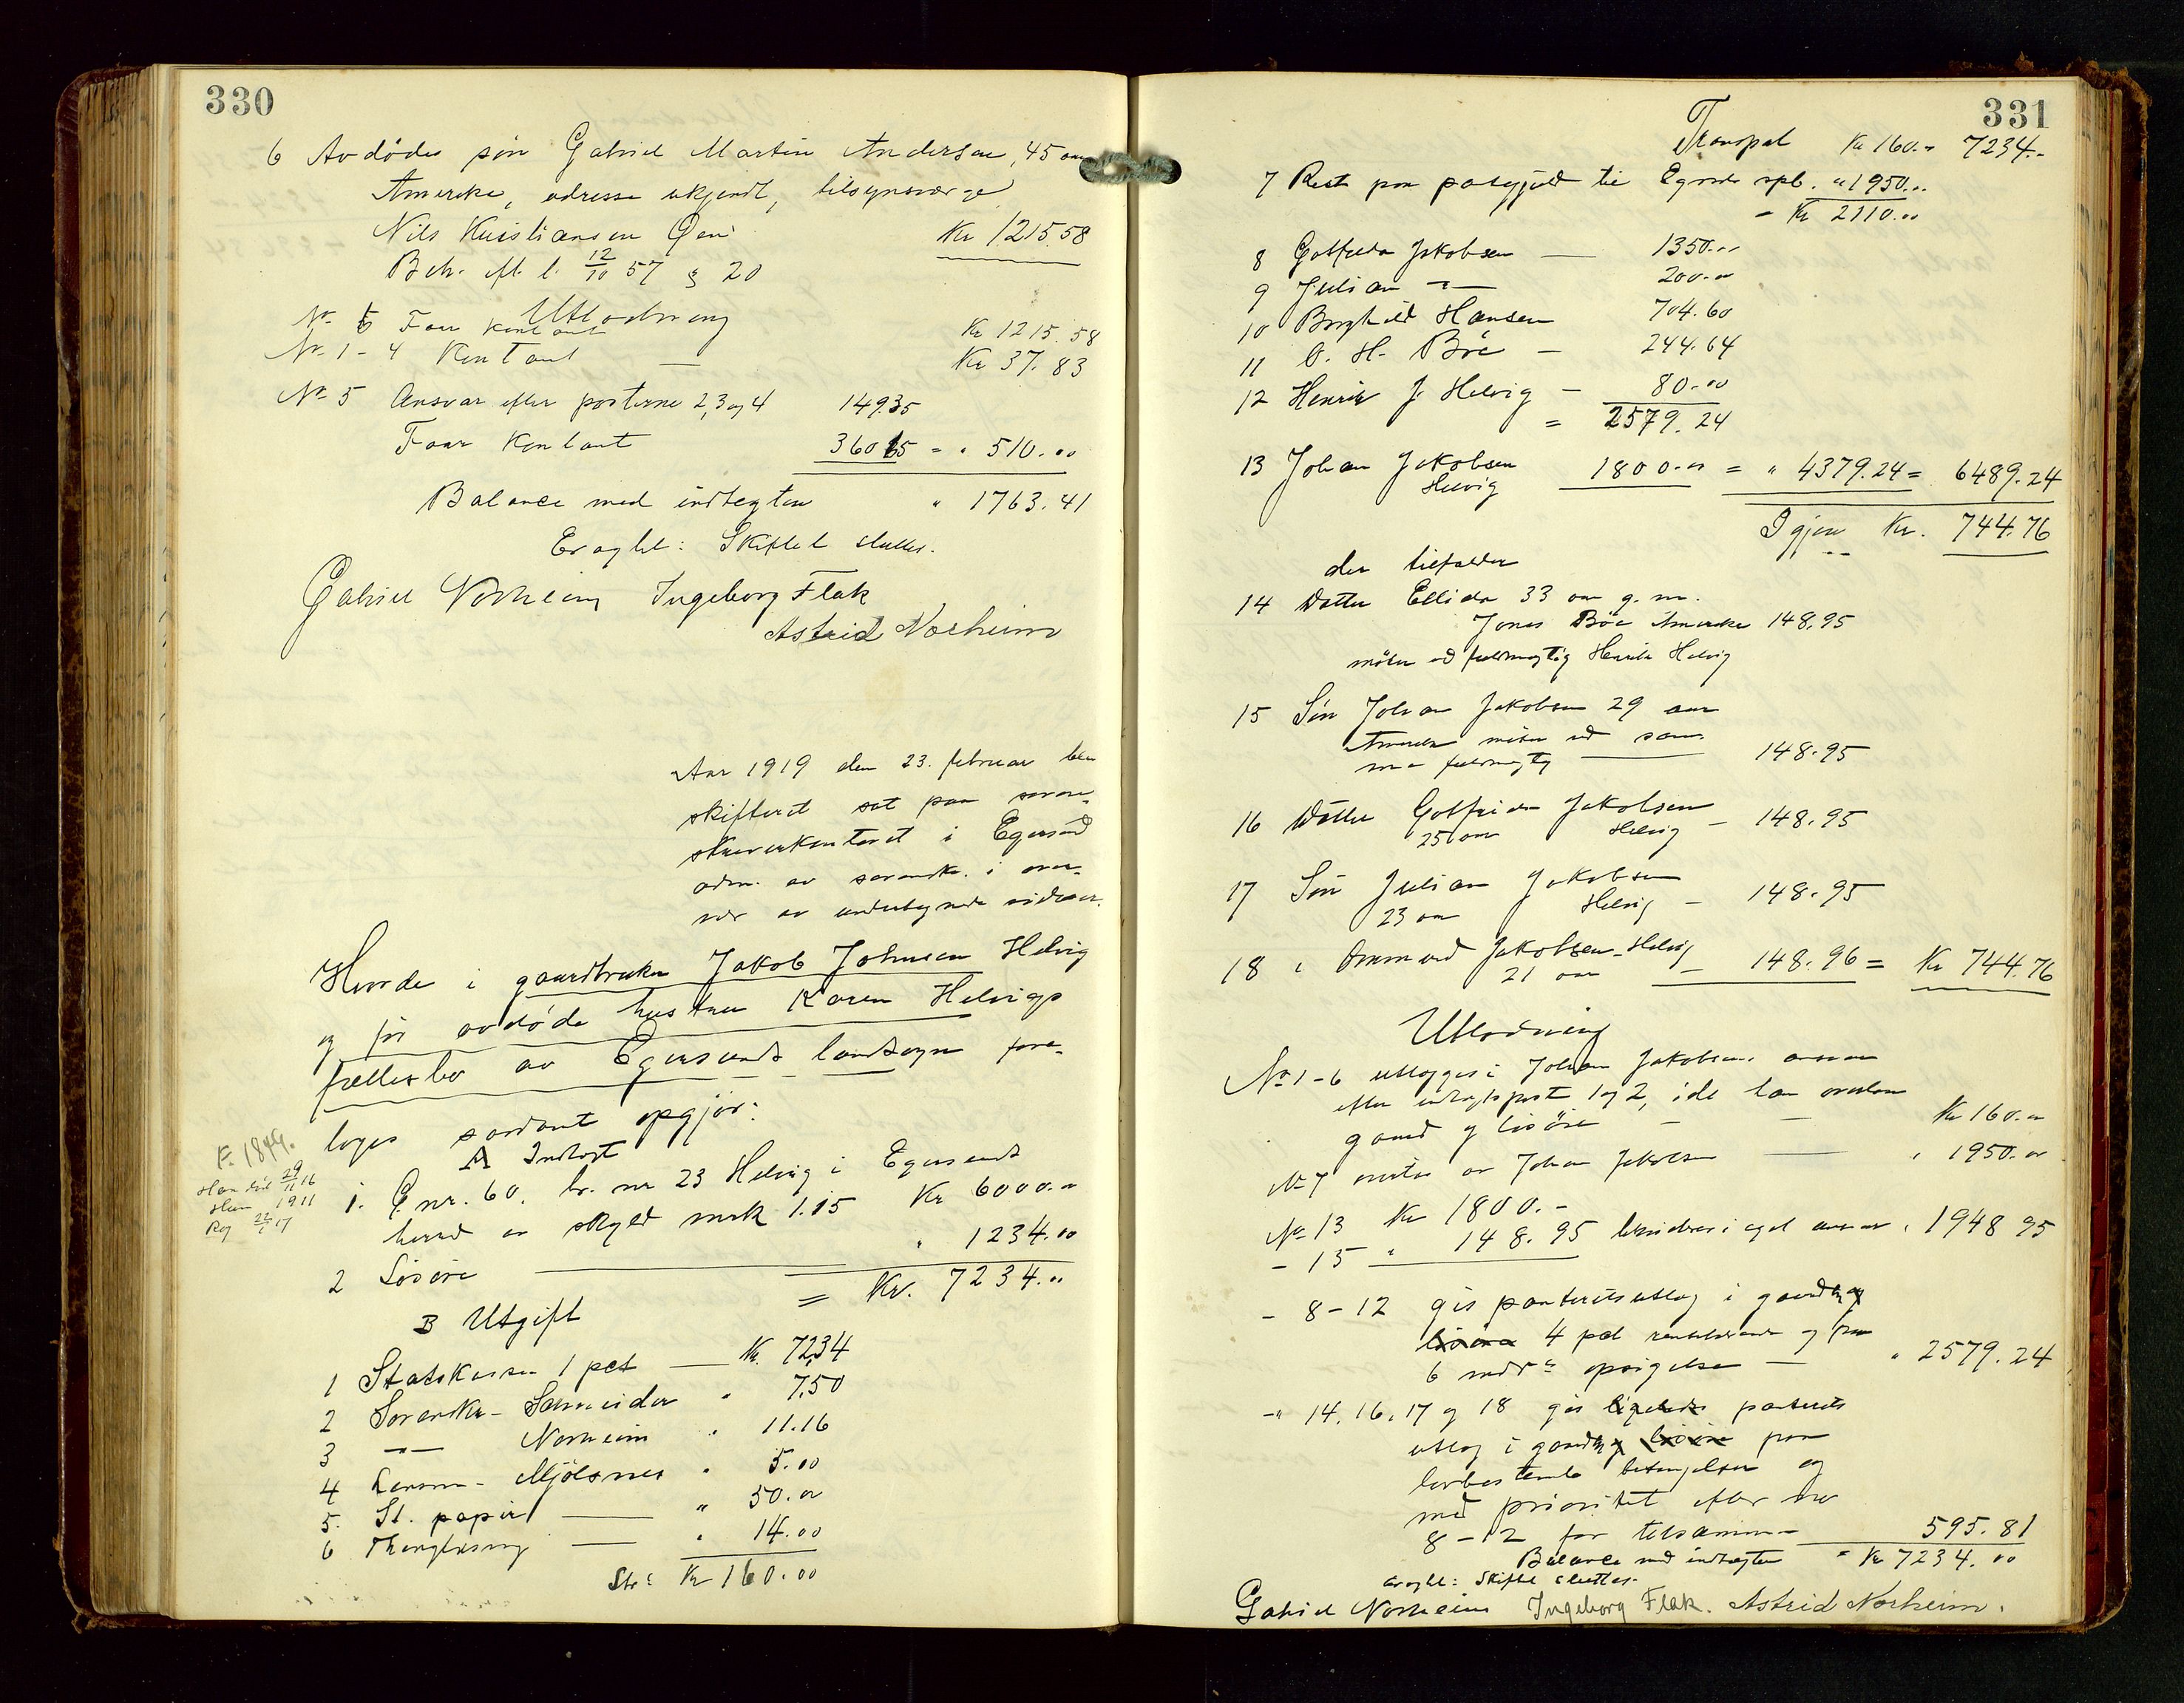 330
6 Avdødes søn Gabriel Martin Andersen, 45 aar
Amerika, adresse ukjendt, tilsynsværge
Nils Kristiansen Kr 1215.58
Beh. eft. l. 12/10 57 § 20
Utlodning
No 6 Faar kontant Kr 1215.58
No 1-4 Kontant — Kr 37.83
No 5 Ansvar efter posterne 2, 3 og 4 149.35
Faar kontant 360.65 = " 510.00
Balance med indtægten " 1763.41
Eragtet: Skiftet sluttes.
Gabriel Norheim Ingeborg Flak
Astrid Norheim
Aar 1919 den 23. februar blev
skifteret sat paa soren-
skriverkontoret i Egersund
adm. av sorenskr. i over-
vær av undertegnede vidner.
Hvorda i gaardbruker Jakob Johnsen Helvig
og før avdøde hustru Karen Helvigs
fællesbo av Egersunds landsogn fore-
toges saadant opgjør:
F. 1849.
Han død 29/11 16
Hun 1911
Reg 22/1 17
A Indtægt
1. G.nr. 60, br. nr 23 Helvig i Egersunds
herred av skyld mark 1.15 Kr 6000.00
2 Løsøre — " 1234.00
= Kr. 7234.00
B Utgift
1 Statskassen 1 pct — Kr. 72,34
2 Sorenskr. " 7,50
3 —"— Norheim " 11.16
4 Lensm. Mjølsnes " 5.00
5. St. papir — " 50.00
6 Thinglæsning — " 14.00
Str: Kr 160.00
331
Transport Kr 160.00 7234.-
7 Rest paa pantegjæld til Egersds spb. " 1950.00
- Kr 2110.00
8 Gotfreda Jakobsen — 1350.00
9 Julian —"— 200.00
10 Borghild Hansen 704.60
11 O. H. Bøe - 244.64
12 Henrik J. Helvig - 80.00
= 2579.24
13 Johan Jakobsen
Helvig 1800.00 = " 4379.24 = 6489.24
Igjen Kr. 744.76
der tilfalder
14 Datter Ellida 33 aar g. m.
Jonas Bøe Amerika 148.95
møter ved fuldmægtig Henrik Helvig
15 Søn Johan Jakobsen 29 aar
Amerika møter ved sam-
me fuldmægtig — 148.95
16 Datter Gotfrida Jakobsen
25 aar Helvig - 148.95
17 Søn Julian Jakobsen
23 aar Helvig - 148.95
18 " Jakobsen Helvig
21 aar - 148.96 = Kr 744.76
Utlodning
No 1-6 utlægges i Johan Jakobsens ansvar
efter indtægtspost 1 og 2, idet han overtar
gaard og løsøre - — Kr 160.00
No 7 overtas av Johan Jakobsen — " 1950.00
No 13 Kr 1800.-
- 15 " 148.95 likvideres i eget ansvar " 1948 95
- 8-12 gis panteretsutlæg i gaarden og
løsøre 4 pct rentebærende og paa
6 mdrs opsigelse — " 2579.24
-" 14, 16, 17 og 18 gis ligeledes panterets
utlæg i gaarden og løsøre paa
lovbestemte betingelser og
med prioritet efter nr
8-12 for tilsammen 595.81
Balance med indtægten = Kr 7234.00
Eragtet: Skiftet sluttes.
Gabriel Norheim Ingeborg Flak. Astrid Norheim.